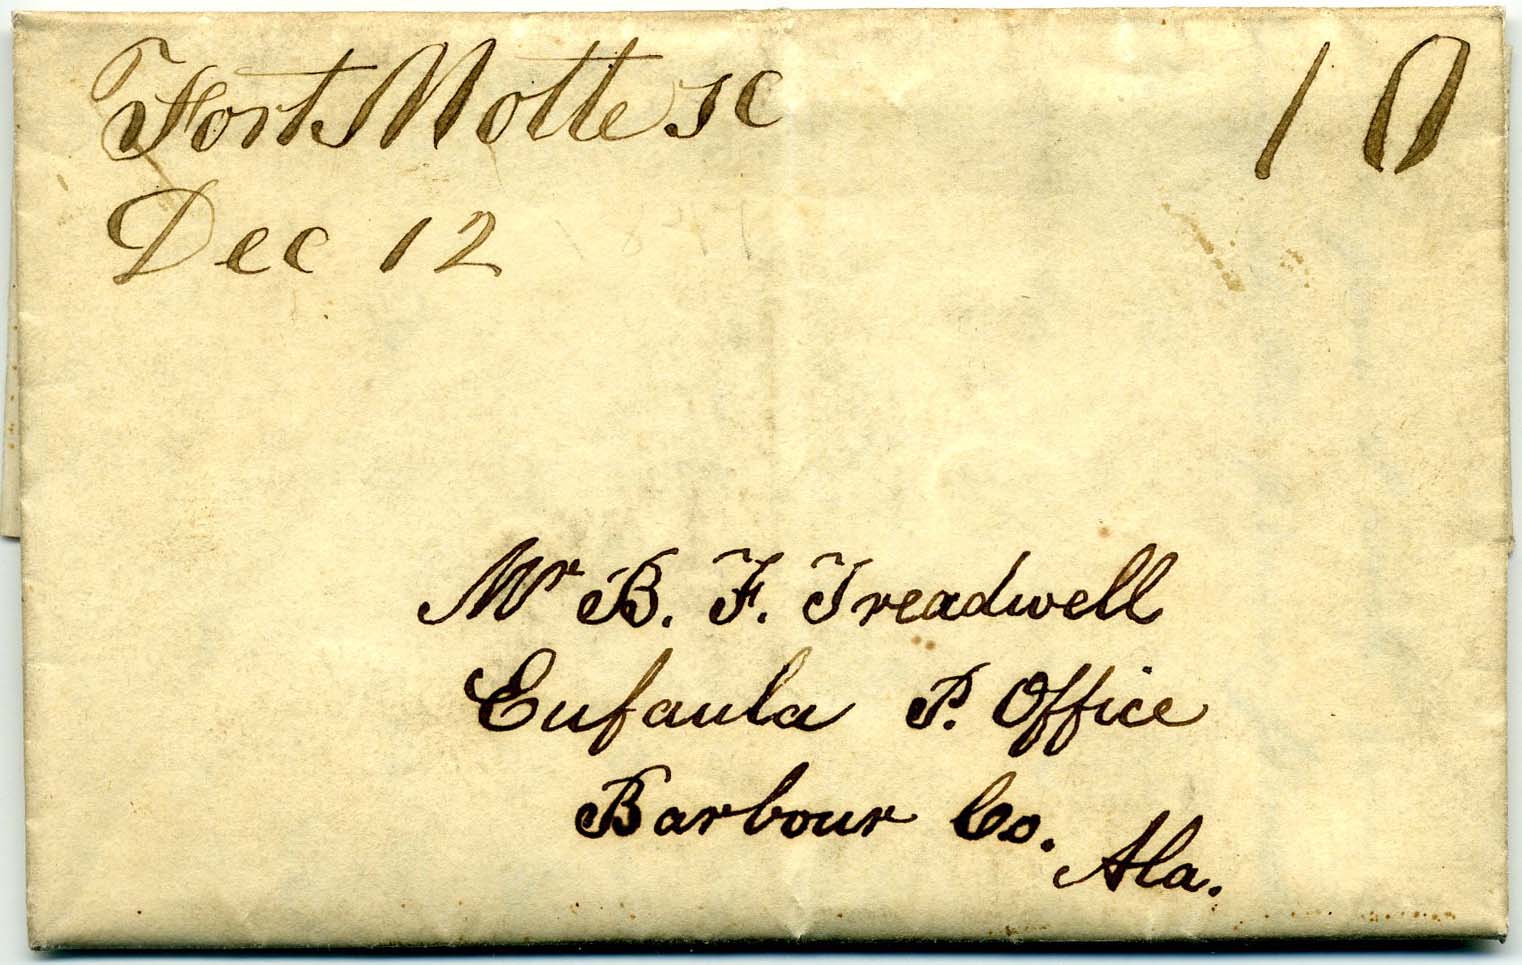 Fort Motte SC
10
Dec 12
Mr B. F. Treadwell
Eufaula P. Office
Barbour Co.
Ala.